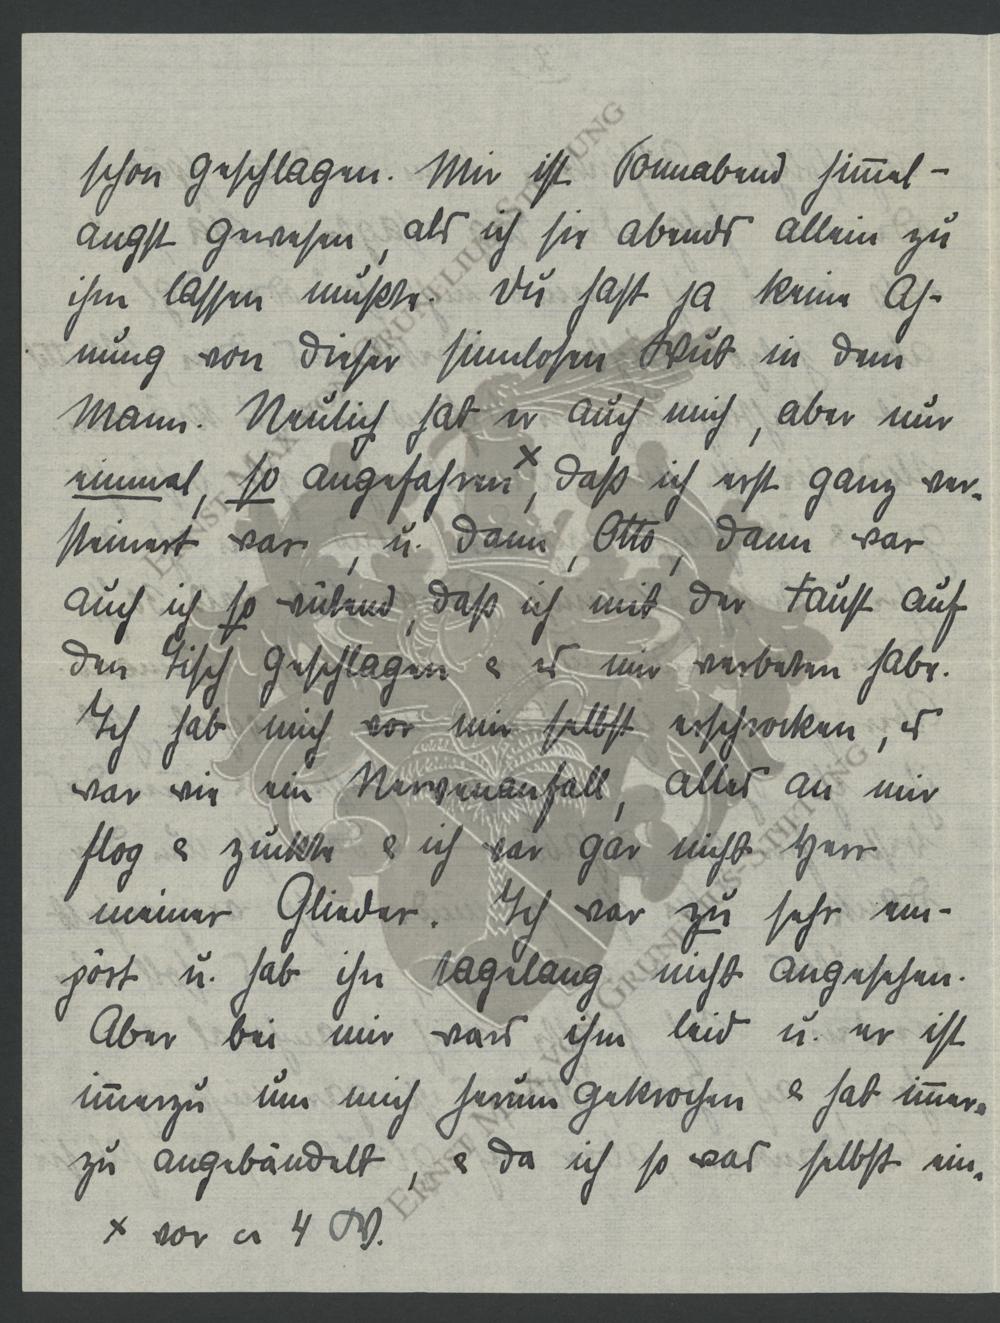 schon geschlagen. Mir ist Sonnabend him̅el-
angst gewesen, als ich sie abends allein zu
ihm lassen mußte. Du hast ja keine Ah-
nung von dieser sinnlosen Wut in dem
Mann. Neulich hat er auch mich, aber nur
einmal, so angefahren ˣ, daß ich erst ganz ver-
steinert war, u. dann, Otto, dann war
auch ich so wütend, daß ich mit der Faust auf
den Tisch geschlagen & es mir verbeten habe.
Ich hab mich vor mir selbst erschrocken, es
war wie ein Nervenanfall, alles an mir
flog & zuckte & ich war gar nicht Herr
meiner Glieder. Ich war zu sehr em-
pört u. hab ihn tagelang nicht angesehen.
Aber bei mir wars ihm leid u. er ist
im̅erzu um mich herum gekrochen & hat im̅er-
zu angebändelt, & da ich so was selbst ein-
x vor ca 4 W.
ERNST MAX VON GRUNELIUS-STIFTUNG
ERNST MAX VON GRUNELIUS-STIFTUNG